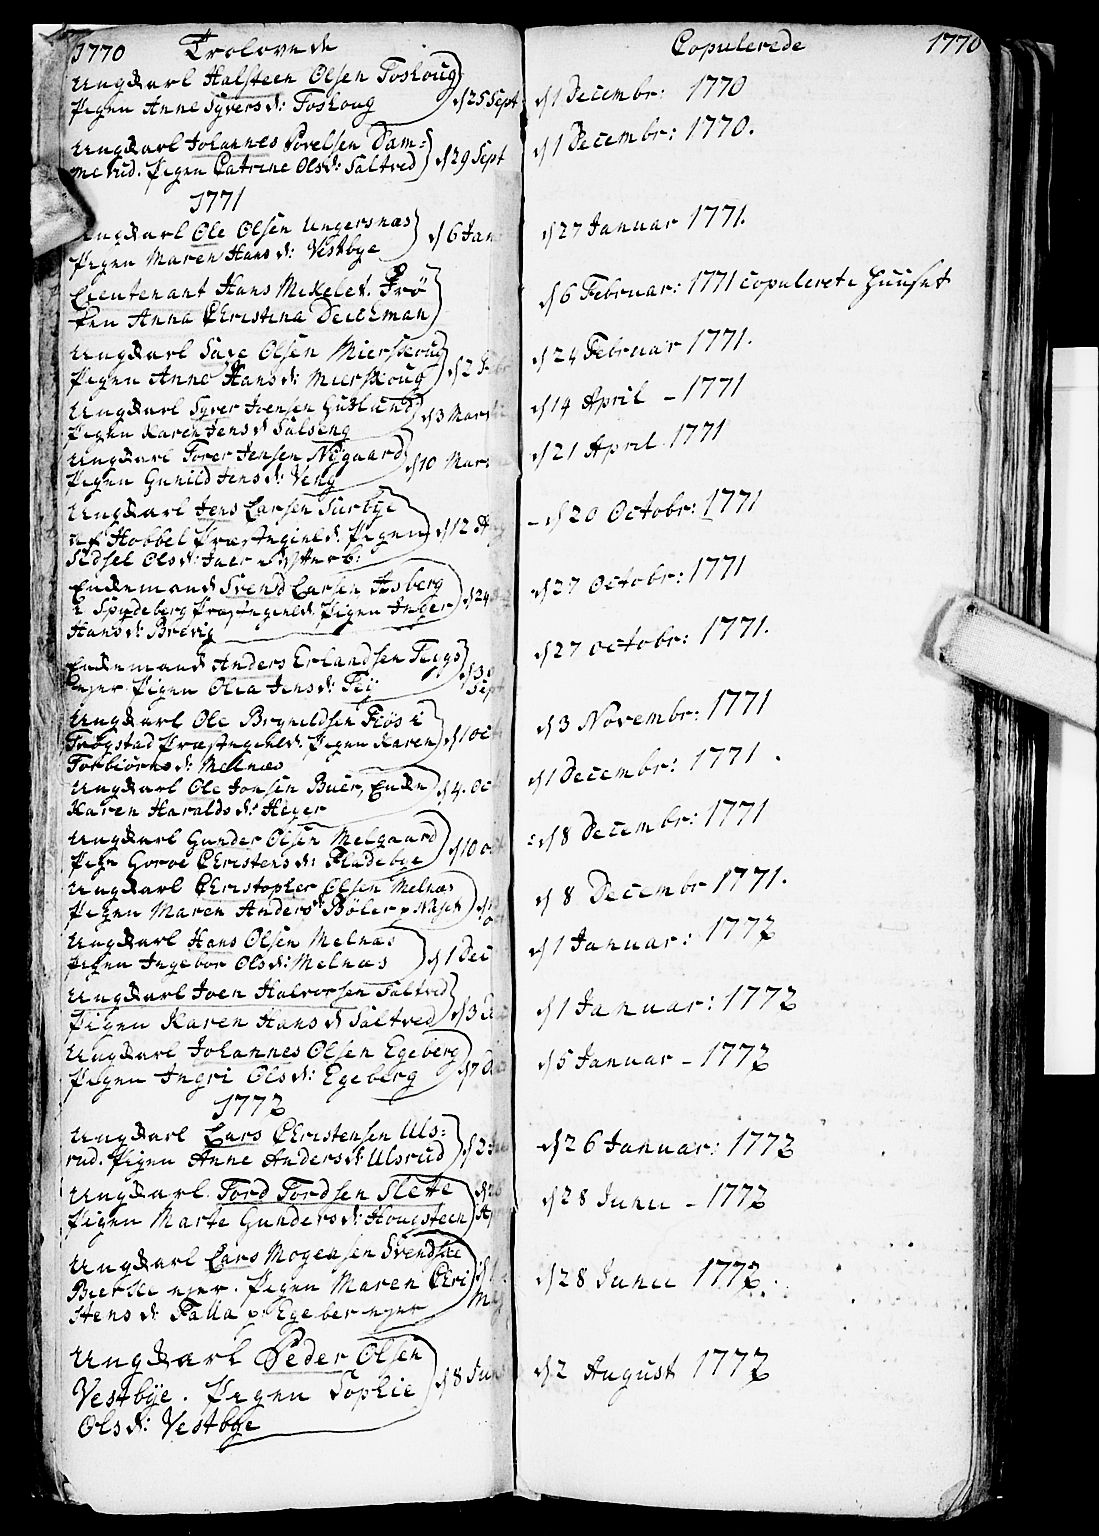 1770 Trolovede
Ungkarl Halsteen Olsen Foshoug
Pigen Anne Syversd: Foshoug d 25 Sept
Ungkarl Johannes Povelsen Dam=
merud. Pigen Catrine Olsd: Saltved d 29 Sept
1771
Ungkarl Ole Olsen Ungersnæs
Pigen Maren Hansd: Vestbye d 6 Jan
Lieutenant Hans Mekelet. Frö
ken Anna Christina Deichman
Ungkarl Olsen Mierskoug
Pigen Anne Hansd: Mierskoug d 2 Febr
Ungkarl Syver Joensen Huslund
Pigen Karen Jensd Salseng d 3 Marti
Ungkarl Torer Jensen Nigaard
Pigen Gunild Jensd: Veng d 10 Mar
Ungkarl Jens Larsen Surbye
af Hobbel Præstegield. Pigen d 12 Aug
Sidsel Olsd: Jaer
Enkemand Svend Larsen Asberg
i Spydeberg Præstegield. Pigen Inger d 24
Hansd: Brevig
Enkemand Anders Erlandsen
ejer. Pigen Olea Jensd: d 30
Sept
Ungkarl Ole Bryneldsen Fiös i
Trögstad Præstegield. Pigen Karen d 1 oct
Torbiörnsd: Melnæs
Ungkarl Ole Jonsen Buer, Enken
Karen Haraldsd: Heyer d 4. Oc
Ungkarl Gunder Olsen Melgaard
Pige Goroe Christensd: Fladebye d 10 oct
Ungkarl Christopher Olsen Melnæs
Pigen Maren Andersd Böler
Ungkarl Hans Olsen Melnæs
Pigen Ingebor Olsd: Melnæs d 1 Dec
Ungkarl Joen Halvorsen Saltved
Pigen Karen Hansd Saltved d 3
Ungkarl Johannes Olsen Egeberg
Pigen Ingri Olsd: Egeberg d 7
1772
Ungkarl Lars Christensen Uls=
rud. Pigen Anne Andersd: Ulsrud d 2
Ungkarl. Tord Tordsen Slette
Pigen Marte Gundersd: Hougsteen
Ungkarl Lars Mogensen Svendske
ejer. Pigen Maren Chri
stensd: Falla p: Egeber ejer
Ungkarl Peder Olsen
Vestbye. Pigen Sophie d 8 Jun
Olsd: Vestbye
Copulerede 1770
d 1 Decembr: 1770
d 1 Decembr: 1770.
d 27 Januar 1771.
d 6 Februar: 1771 copuleret i Huuset
d 24 Februar 1771.
d 14 April - 1771
d 21 April 1771
- d 20 Octobr: 1771
d 27 Octobr: 1771
d 27 octobr: 1771.
d 3 Novembr: 1771
d 1 Decembr: 1771.
d 8 Decembr: 1771
d 8 Decembr 1771.
d 1 Januar: 1772
d 1 Januar: 1772
d 5 Januar - 1772
d 26 Januar: 1772
d 28 Junii - 1772
d 28 Junii 1772.
d 2 August 1772